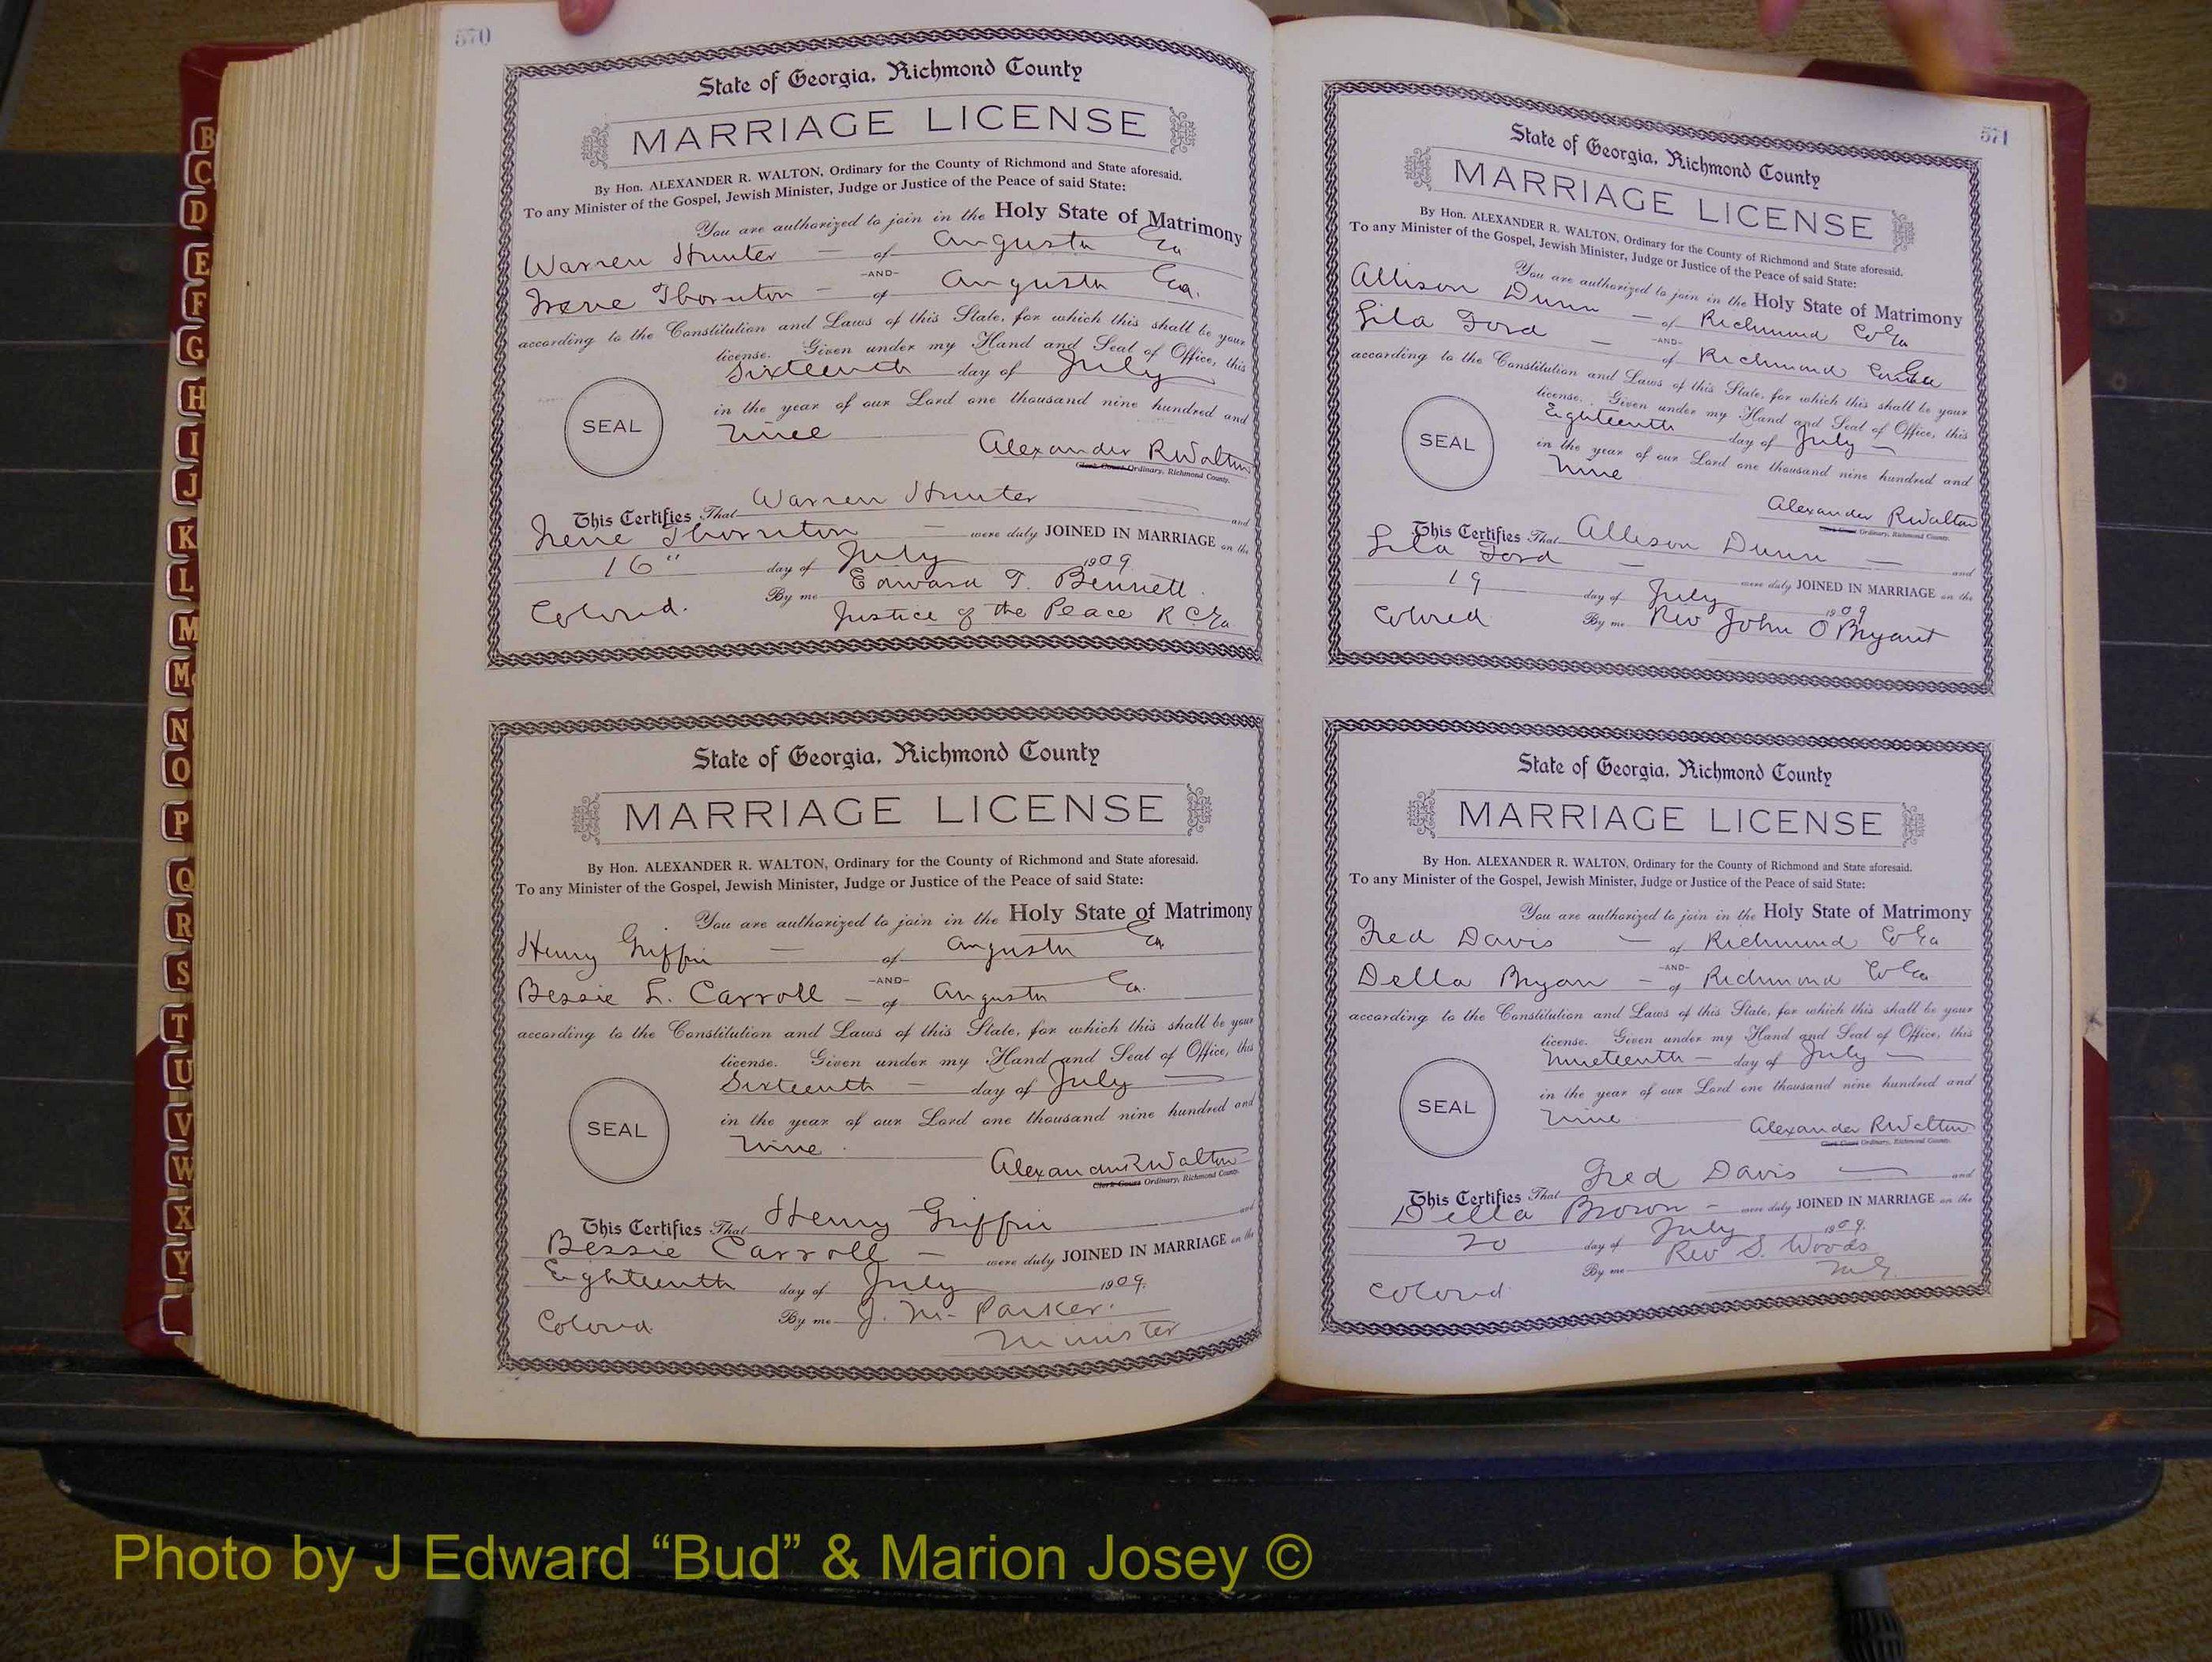 B
C
D
E
F
G
H
I
J
K
L
M
Mc
N
O
P
Q
R
S
T
U
V
W
X
Y
570
State of Georgia, Richmond County
MARRIAGE LICENSE
By Hon. ALEXANDER R. WALTON, Ordinary for the County of Richmond and State aforesaid.
To any Minister of the Gospel, Jewish Minister, Judge or Justice of the Peace of said State:
You are authorized to join in the Holy State of Matrimony
Warren Hunter — of Augusta Ga
-AND-
Irene Thornton — of Augusta Ga.
according to the Constitution and Laws of this State, for which this shall be your
license. Given under my Hand and Seal of Office, this
Sixteenth day of July
SEAL
in the year of our Lord one thousand nine hundred and
nine
Alexander R Walton
Clerk Court Ordinary, Richmond County.
This Certifies That Warren Hunter and
Irene Thornton — were duly JOINED IN MARRIAGE on the
16" day of July 1909
By me Edward T. Bennett
Colored. Justice of the Peace R C Ga
State of Georgia, Richmond County
MARRIAGE LICENSE
By Hon. ALEXANDER R. WALTON, Ordinary for the County of Richmond and State aforesaid.
To any Minister of the Gospel, Jewish Minister, Judge or Justice of the Peace of said State:
You are authorized to join in the Holy State of Matrimony
Henry Griffin — of Augusta Ga
-AND-
Bessie L. Carroll — of Augusta Ga.
according to the Constitution and Laws of this State, for which this shall be your
license. Given under my Hand and Seal of Office, this
Sixteenth — day of July —
SEAL
in the year of our Lord one thousand nine hundred and
nine.
Alexander R Walton
Clerk Court Ordinary, Richmond County.
This Certifies That Henry Griffin and
Bessie Carroll — were duly JOINED IN MARRIAGE on the
Eighteenth day of July 1909.
Colored By me J. M. Parker.
Minister
571
State of Georgia, Richmond County
MARRIAGE LICENSE
By Hon. ALEXANDER R. WALTON, Ordinary for the County of Richmond and State aforesaid.
To any Minister of the Gospel, Jewish Minister, Judge or Justice of the Peace of said State:
You are authorized to join in the Holy State of Matrimony
Allison Dunn — of Richmond Co Ga
-AND-
Lila Ford — of Richmond Co Ga
according to the Constitution and Laws of this State, for which this shall be your
license. Given under my Hand and Seal of Office, this
Eighteenth day of July —
SEAL
in the year of our Lord one thousand nine hundred and
nine
Alexander R Walton
Clerk Court Ordinary, Richmond County.
This Certifies That Allison Dunn — and
Lila Ford — were duly JOINED IN MARRIAGE on the
19 day of July 1909
Colored By me Rev John O Bryant
State of Georgia, Richmond County
MARRIAGE LICENSE
By Hon. ALEXANDER R. WALTON, Ordinary for the County of Richmond and State aforesaid.
To any Minister of the Gospel, Jewish Minister, Judge or Justice of the Peace of said State:
You are authorized to join in the Holy State of Matrimony
Fred Davis — of Richmond Co Ga
-AND-
Della Bryan — of Richmond Co Ga
according to the Constitution and Laws of this State, for which this shall be your
license. Given under my Hand and Seal of Office, this
Nineteenth — day of July —
SEAL
in the year of our Lord one thousand nine hundred and
nine
Alexander R Walton
Clerk Court Ordinary, Richmond County.
This Certifies That Fred Davis — and
Della Brown — were duly JOINED IN MARRIAGE on the
20 day of July 1909.
By me Rev S. Woods
Colored M.G.
Photo by J Edward “Bud” & Marion Josey ©